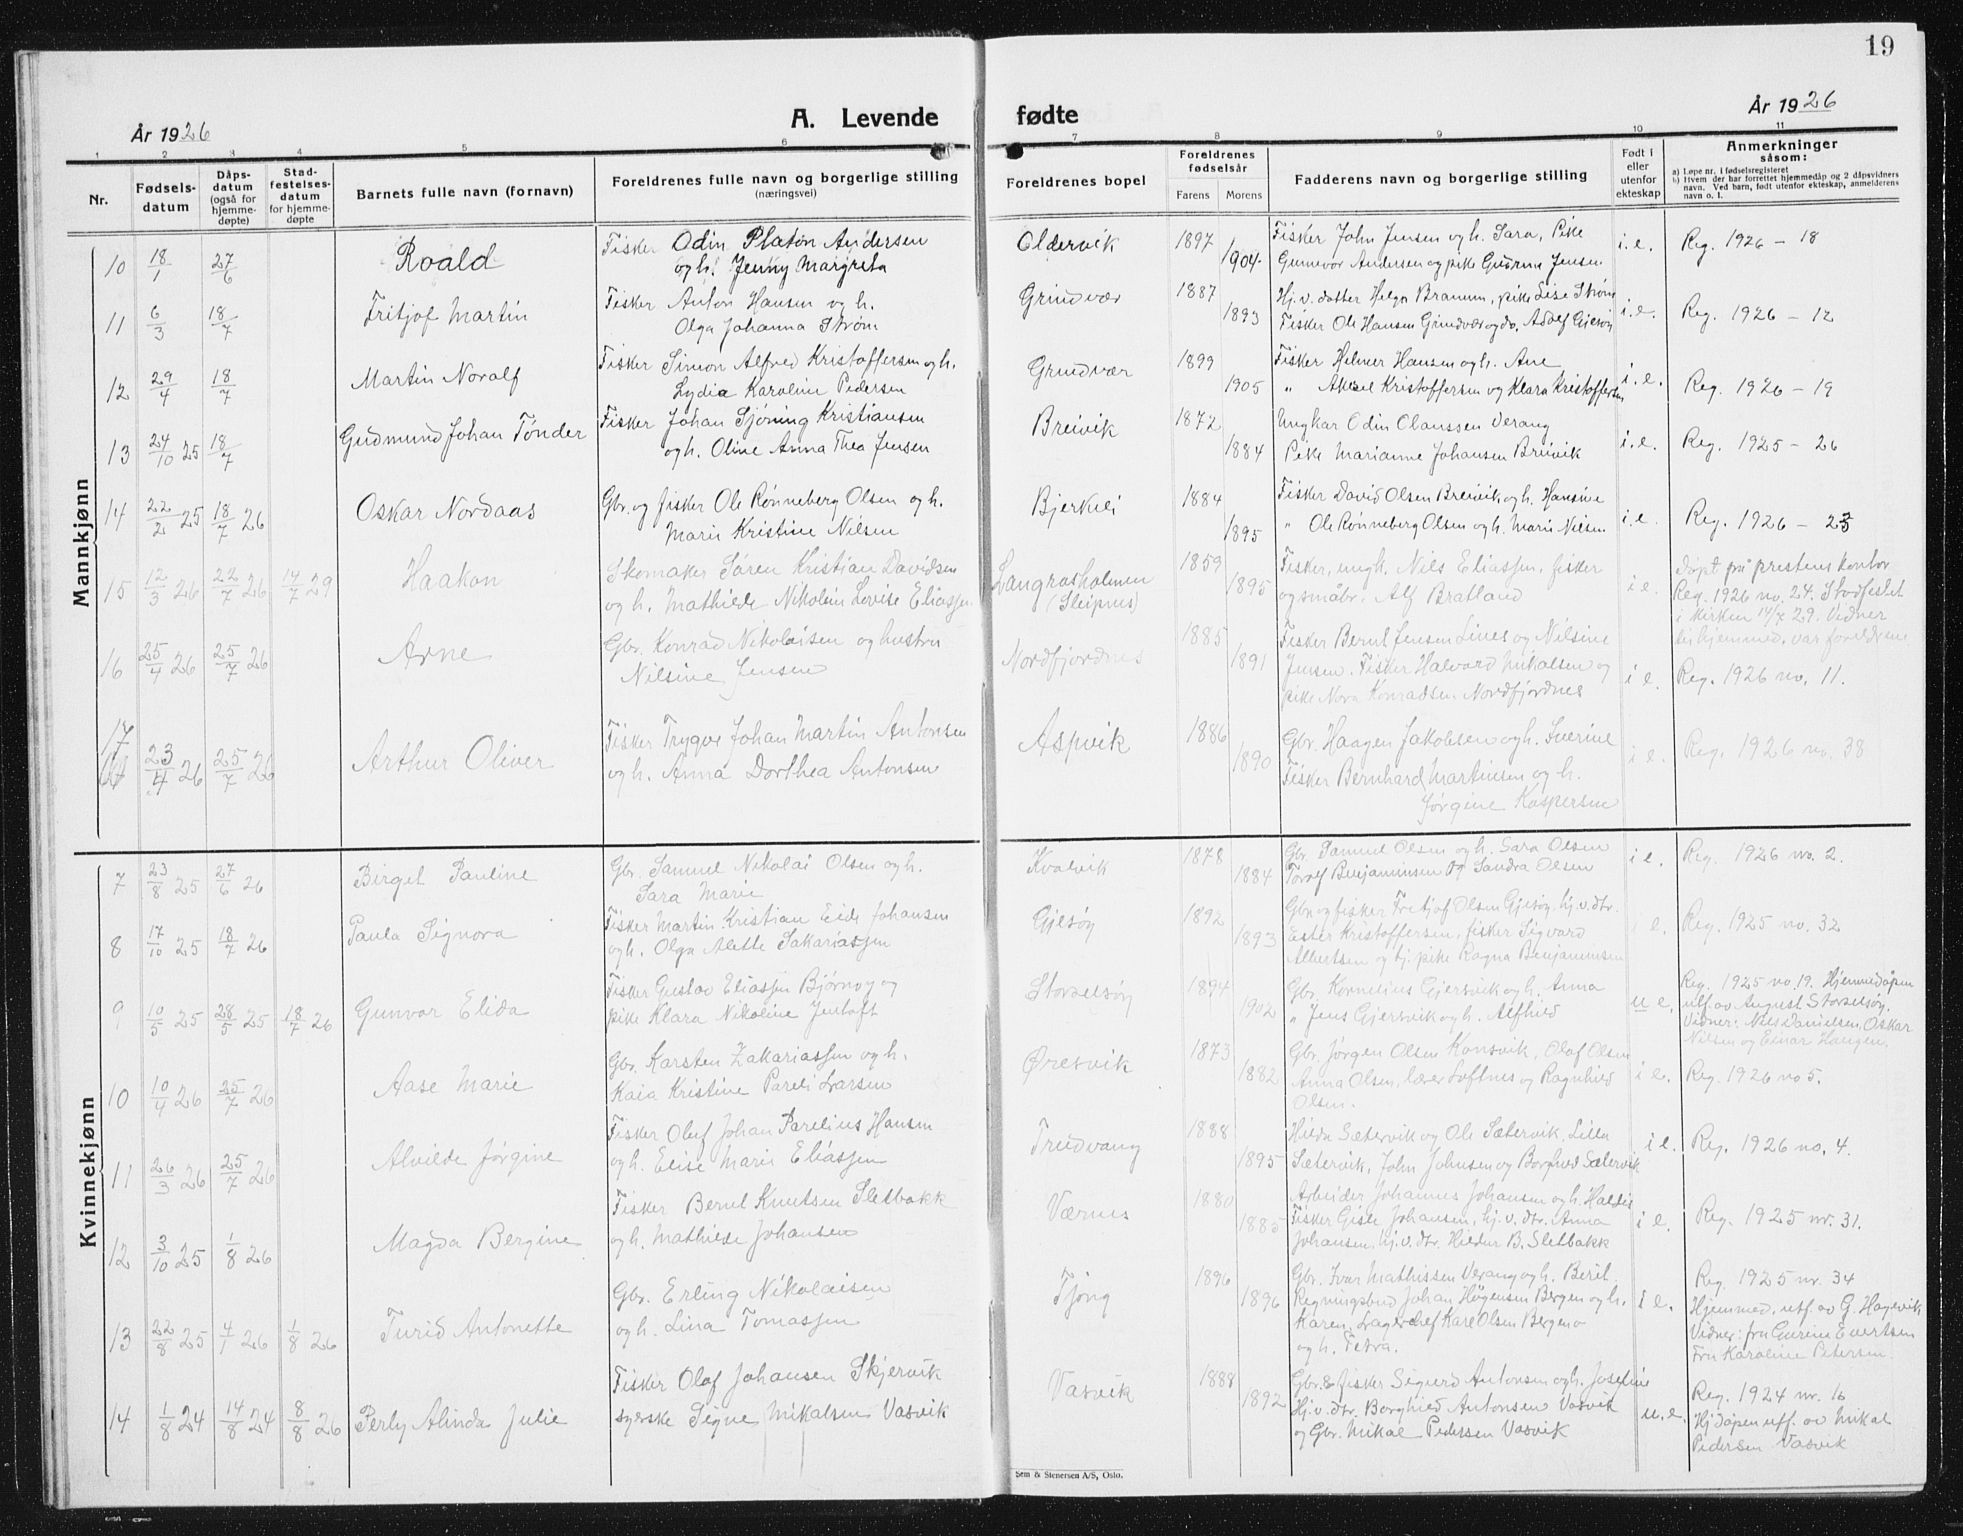 19
År 1926
A. Levende fødte
År 1926
1 2 3 4 5 6 7 8 9 10 11
Nr.
Fødsels-datum
Dåps-datum (også for hjemme-døpte)
Stad-festelses-datum for hjemme-døpte
Barnets fulle navn (fornavn)
Foreldrenes fulle navn og borgerlige stilling (næringsvei)
Foreldrenes bopel
Foreldrenes fødselsår
Farens Morens
Fadderens navn og borgerlige stilling
Født i eller utenfor ekteskap
Anmerkninger såsom:
a) Løpe nr. i fødselsregisteret
b) Hvem der har forrettet hjemmedåp og 2 dåpsvidners navn. Ved barn, født utenfor ekteskap, anmelderens navn o. l.
Mannkjønn
10 18/1 27/6 Roald Fisker Odin Platon Andersen Oldervik 1897 Fisker John Jensen og h. Sara, Pike i.e. Reg. 1926 – 18
og h. Jenny Margreta 1904 Gunnvor Andersen og pike Gudrun Jensen
11 6/3 18/7 Fritjof Martin Fisker Anton Hansen og h. Grindvær 1887 Hj.v. datter Helga Branum, pike Lise Strøm i.e. Reg. 1926 – 12
Olga Johanna Strøm 1893 Fisker Ole Hansen Grindvær og do. Adolf Gjesøy
12 29/4 18/7 Martin Noralf Fisker Simon Alfred Kristoffersen og h. Grindvær 1899 Fisker Helmer Hansen og h. Ane i.e. Reg. 1926 – 19
Lydia Karoline Pedersen 1905 " Aksel Kristoffersen og Klara Kristoffersen
13 24/10 25 18/7 Gudmund Johan Tønder Fisker Johan Sjøning Kristiansen Breivik 1872 Ungkar Odin Olaussen Verang i.e. Reg. 1925 – 26
og h. Oline Anna Thea Jensen 1884 Pike Marianne Johansen Breivik
14 22/2 25 18/7 26 Oskar Nordaas Gbr. og fisker Ole Rønneberg Olsen og h. Bjerkli 1884 Fisker David Olsen Breivik og h. Hansine i.e. Reg. 1926 – 23
Marie Kristine Nilsen 1895 " Ole Rønneberg Olsen og h. Marie Nilsen
15 12/3 26 22/7 26 14/7 29 Haakon Skomaker Søren Kristian Davidsen Langrasholmen 1859 Fisker, ungk. Nils Eliassen, fisker i e. Døpt på prestens kontor
og h. Mathilde Nikoline Lovise Eliassen (Sleipnes) 1895 og småbr. Alf Bratland Reg. 1926 no. 24. Stadfestet
i kirken 14/7 29. Vidner
til hjemmed. var foreldrene
16 25/4 26 25/7 26 Arne Gbr. Konrad Nikolaisen og hustru Nordfjordnes 1885 Fisker Bernt Jensen Lines og Nilsine
Nilsine Jensen 1891 Jensen. Fisker Halvard Mikalsen og i e. Reg. 1926 no. 11.
pike Nora Konradsen Nordfjordnes
17 23/4 26 25/7 26 Arthur Oliver Fisker Trygve Johan Martin Antonsen Aspvik 1886 Gbr. Haagen Jakobsen og h. Severine i e. Reg. 1926 no. 38
og h. Anna Dorthea Antonsen 1890 Fisker Bernhard Martinsen og h.
Jørgine Kaspersen
Kvinnekjønn
7 23/8 25 27/6 26 Birget Pauline Gbr. Samuel Nikolai Olsen og h. Kvalvik 1878 Gbr. Samuel Olsen og h. Sara Olsen i e. Reg. 1926 no. 2.
Sara Marie 1884 Toralf Benjaminsen og Sandra Olsen
8 17/10 25 18/7 26 Paula Signora Fisker Martin Kristian Eide Johansen Gjesøy 1892 Gbr. og fisker Fritjof Olsen Gjesøy, hj.v. dtr. i e. Reg. 1925 no. 32
og h. Olga Alette Sakariassen 1893 Ester Kristoffersen, fisker Sigvard
Albertsen og hj. pike Ragna Benjaminsen
9 10/5 25 28/5 25 18/7 26 Gunvor Elida Fisker Gustav Eliassen Bjørnøy og Storselsøy 1894 Gbr. Kornelius Gjersvik og h. Anna u e. Reg. 1925 no 19. Hjemmedåpen
pike Klara Nikoline Jentoft 1902 " Jens Gjersvik og h. Alfhild utf. av August Storselsøy
Vidner: Nils Danielsen, Oskar
Nilsen og Einar Haugen.
10 10/4 26 25/7 26 Aase Marie Gbr. Karsten Zakariassen og h. Øresvik 1873 Gbr. Jørgen Olsen Konsvik, Olaf Olsen i e. Reg. 1926 no 5.
Kaia Kristine Pareli Larsen 1882 Anna Olsen, lærer Loftnes og Ragnhild
Olsen.
11 26/3 26 25/7 26 Alvilde Jørgine Fisker Oluf Johan Parelius Hansen Trudvang 1888 Hilda Sætervik og Ole Sætervik, Lilla i e. Reg. 1926 no. 4.
og h. Elise Marie Eliassen 1895 Sætervik, John Johnsen og Borghild Sætervik
12 3/10 25 1/8 26 Magda Bergine Fisker Bernt Knutsen Sletbakk Værnes 1880 Arbeider Johannes Johansen og h. Haldis i e. Reg. 1925 nr. 31.
og h. Mathilde Johansen 1885 Fisker Gisle Johansen, hj.v. dtr. Anna
Johansen, hj.v. dtr. Hildur B. Sletbakk
13 22/8 25 4/1 26 1/8 26 Turid Antonette Gbr. Erling Nikolaisen Tjong 1896 Gbr. Ivar Mathissen Verang og h. Berit i e. Reg. 1925 nr. 34
og h. Lina Tomassen 1896 Regningsbud Johan Høgensen Bergen og h. Hjemmed. utf. av G. Hagevik
Karen. Lagerchef Karl Olsen Bergen Vidner: fru Gurine Evertsen
og h. Petra. Fru Karoline Petersen
14 1/8 24 14/8 24 8/8 26 Perly Alinda Julie Fisker Olaf Johansen Skjervik Vasvik 1888 Gbr. & fisker Sigurd Antonsen og h. Josefine u.e. Reg. 1924 nr. 16
syerske Signe Mikalsen Vasvik 1892 Hj.v. dtr. Borghild Antonsen Vasvik Hj.dåpen utf. av Mikal
og Gbr. Mikal Pedersen Vasvik Pedersen Vasvik
Sem & Stenersen A/S, Oslo.